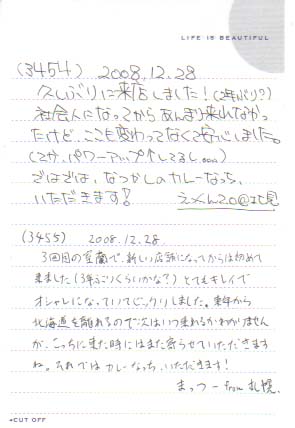 LIFE IS BEAUTIFUL
(3454) 2008.12.28
久しぶりに来店しました!(2年ぶり?)
社会人になってからあんまり来れなかっ
たけど、ここも変わってなくて安心しました。
(てか、パワーアップ↑してるし。。。)
ではでは、なつかしのカレーなっち、
いただきます! えべん20@北見
(3455) 2008.12.28.
3回目の宝蘭で、新しい店舗になってからは初めて
来ました(3年ぶりくらいかな?)とてもキレイで
オシャレになっていてビックリしました。来年から
北海道を離れるので次はいつ来れるかわかりません
が、こっちに来た時にはまた寄らせていただきます
ね。それではカレーなっち、いただきます!
まっつー from 札幌.
CUT OFF